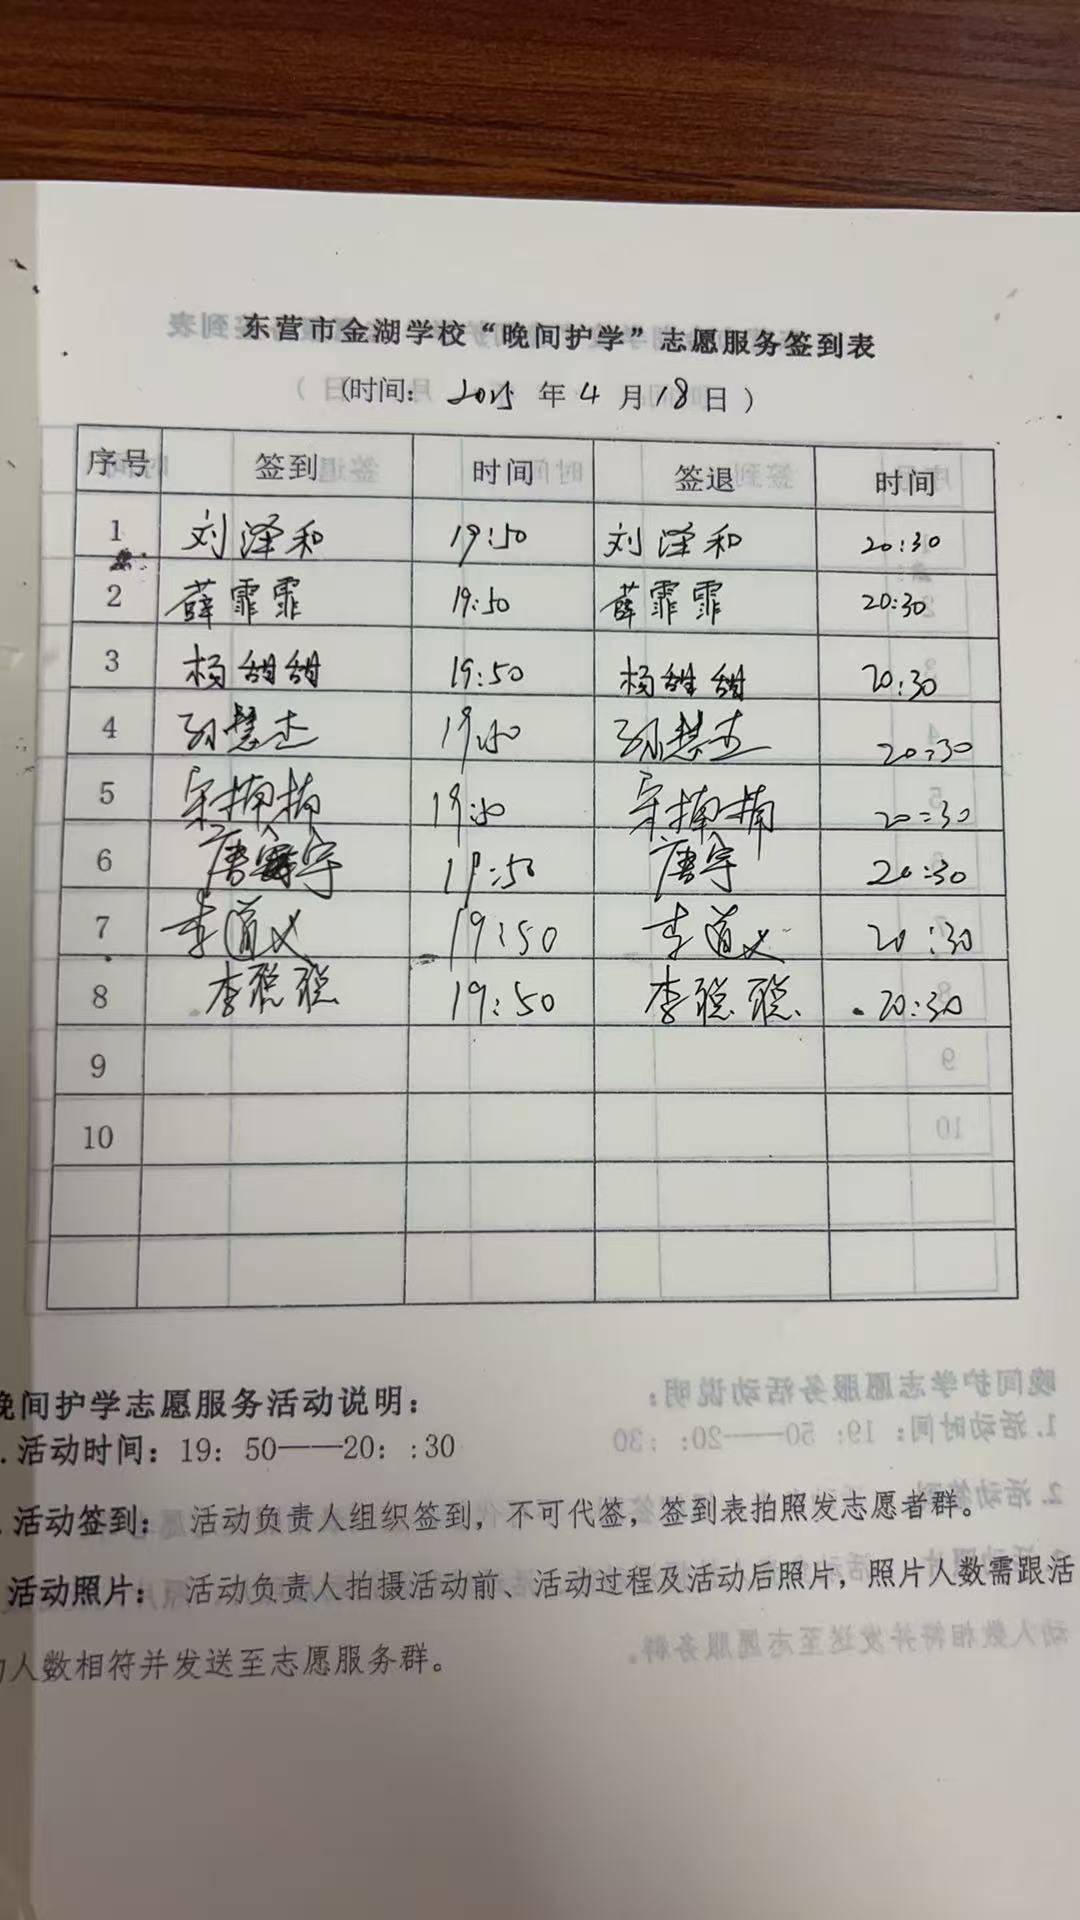 东营市金湖学校“晚间护学”志愿服务签到表
(时间: 2025 年 4 月 18 日 )
序号 签到 时间 签退 时间
1 刘泽和 19:50 刘泽和 20:30
2 薛霏霏 19:50 薛霏霏 20:30
3 杨甜甜 19:50 杨甜甜 20:30
4 孙慧杰 19:50 孙慧杰 20:30
5 宋楠楠 19:50 宋楠楠 20:30
6 唐宇 19:50 唐宇 20:30
7 李道义 19:50 李道义 20:30
8 李聪聪 19:50 李聪聪 20:30
9
10
晚间护学志愿服务活动说明:
.活动时间: 19: 50——20: :30
活动签到: 活动负责人组织签到, 不可代签, 签到表拍照发志愿者群。
活动照片: 活动负责人拍摄活动前、活动过程及活动后照片, 照片人数需跟活
动人数相符并发送至志愿服务群。